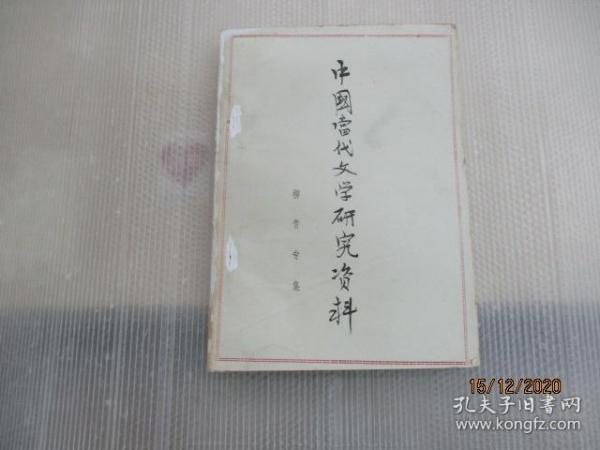 中國當代文学研究资料
柳青专集
15/12/2020
孔夫子旧书网
www.kongfz.com